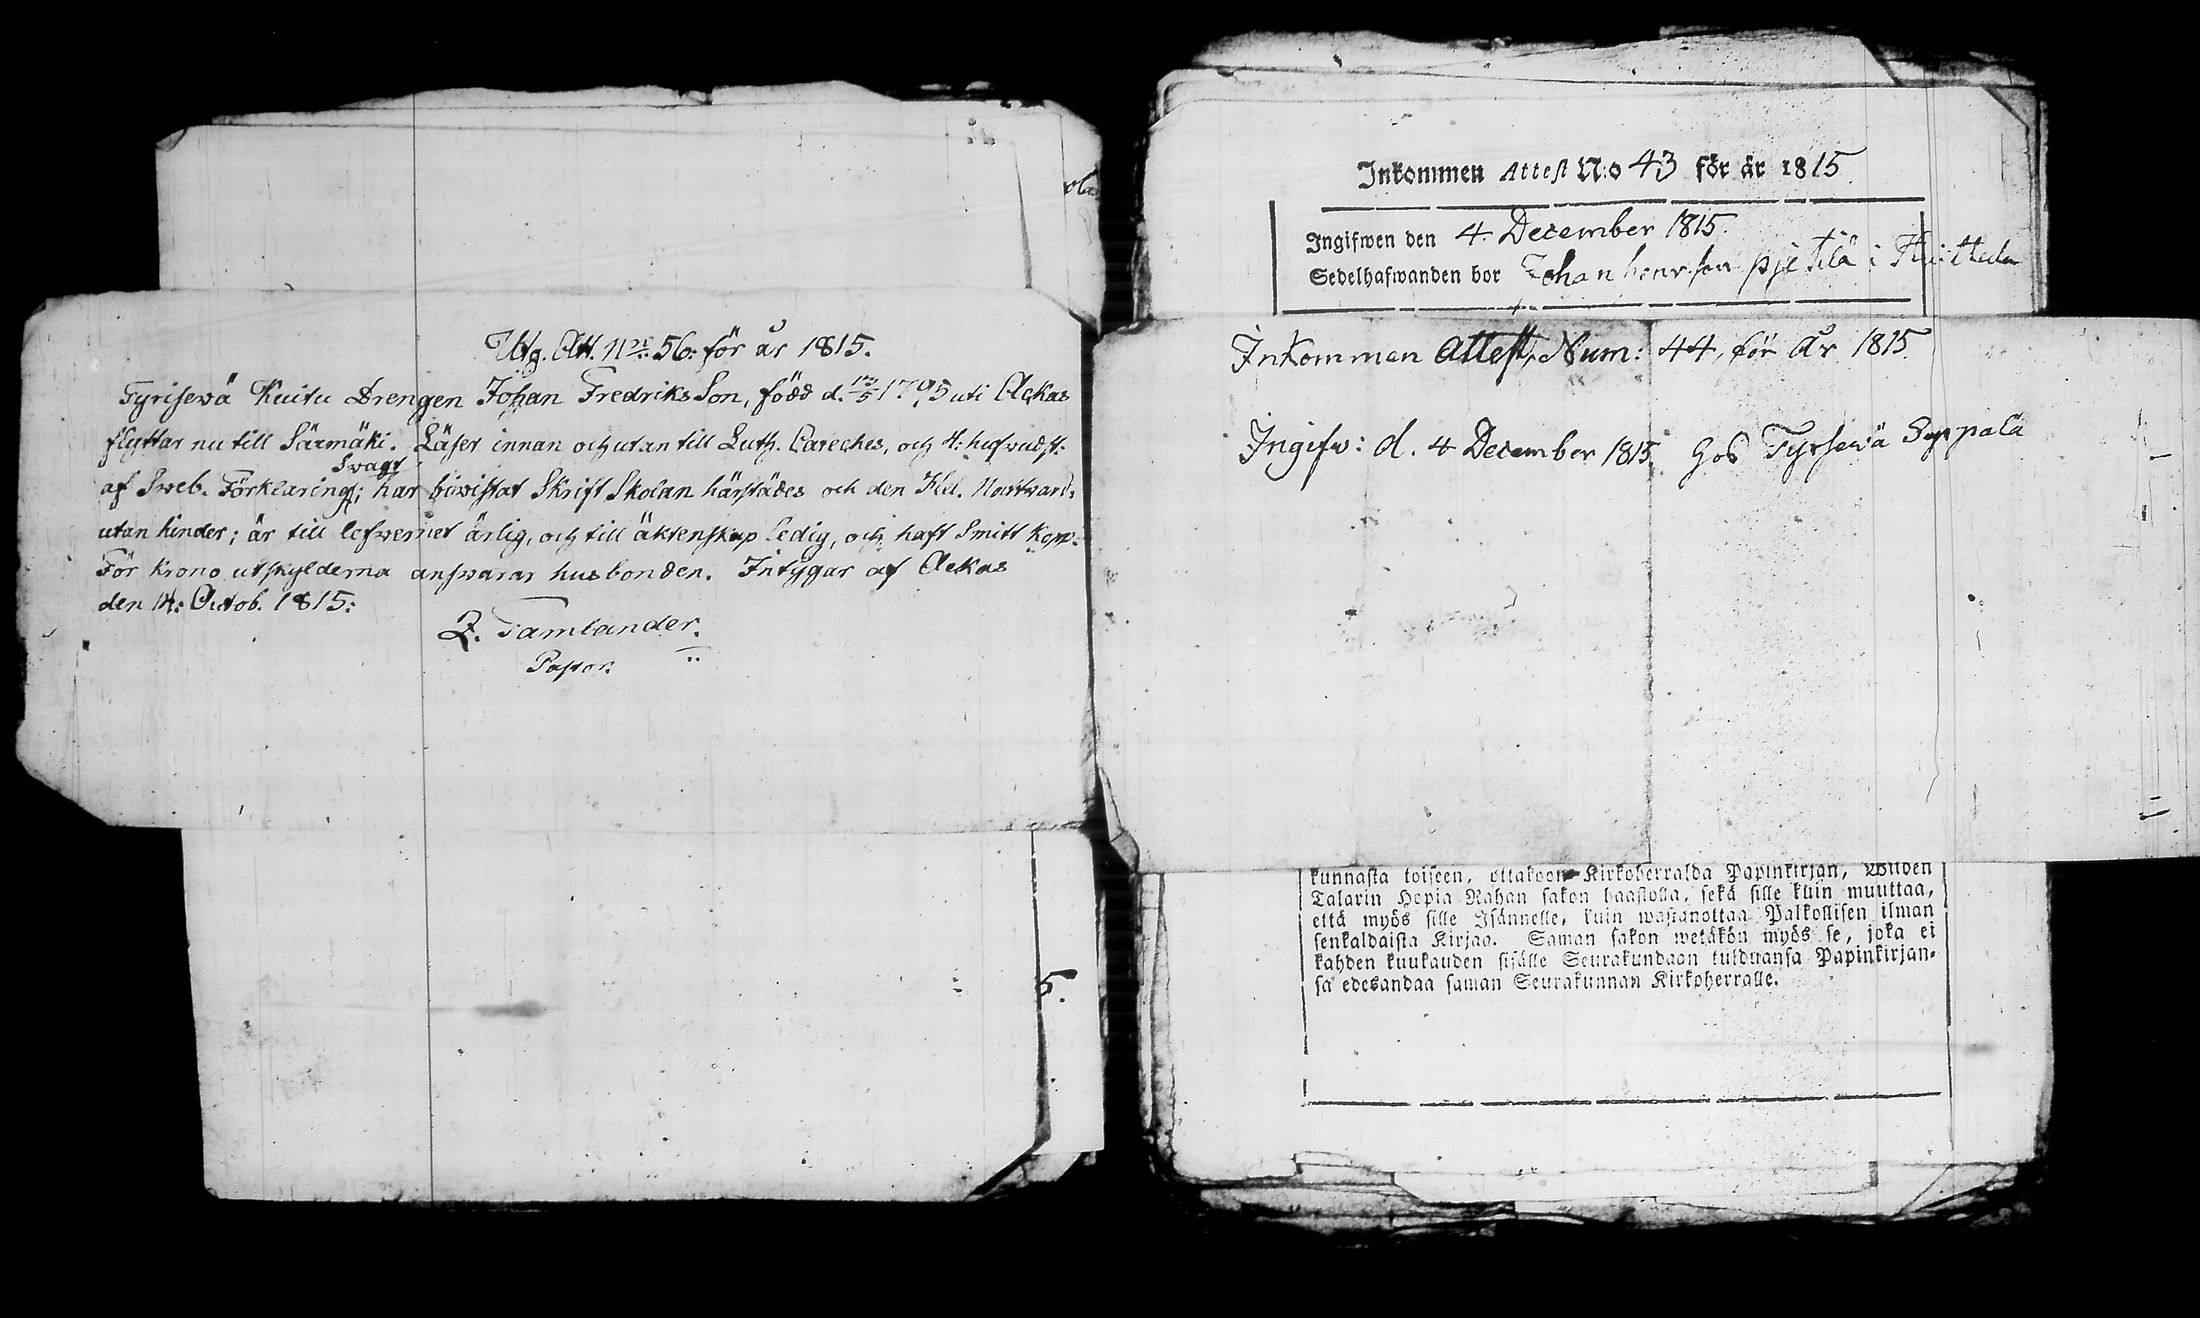 Utg. Att. N:r 56: för år 1815.
Tyrisewä Kuitu Drengen Johan Fredriks Son, född d. 13/5 1795 uti Ackas
flyttar nu till Särmäki. Läser innan och utan till Luth. Careches, och H: hufwudst:
af Sweb. Förklaring; Swagt har biwistat Skrift Skolan härstädes och den Hel. Nattward:
utan hinder; är till lefwernet ärlig, och till äktenskap ledig, och haft Smitt Kopp:
För Krono utskylderna answarar husbonden. Intygar af Ackas
den 14: Octob. 1815:
Z. Tamlander.
Pastor.
5.
Inkommen Attest N:o 43 för år 1815
Ingifwen den 4. December 1815.
Sedelhafwanden bor Johan henr.son pjetilä i
Inkommen Attest, Num: 44, för år 1815
Ingifw: d. 4 December 1815. hos Tyrsewä Seppälä
kunnasta toiseen, ottakoon Kirkoherralda Papinkirjan, Wiiden
Talarin Hopia Rahan sakon haastolla, sekä sille kuin muuttaa,
että myös sille Isännelle, kuin wastanottaa Palkollisen ilman
senkaldaista Kirjaa. Saman sakon wetäkön myös se, joka ei
kahden kuukauden sisälle Seurakundaan tulduansa Papinkirjan-
sa edesandaa saman Seurakunnan Kirkoherralle.